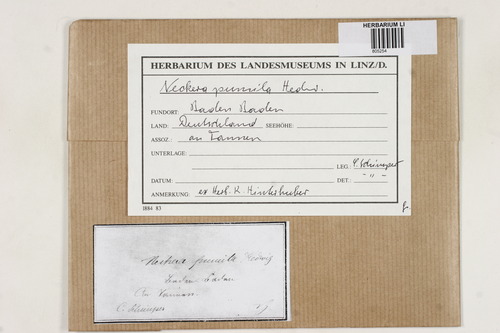 HERBARIUM LI
805254
HERBARIUM DES LANDESMUSEUMS IN LINZ/D.
Neckera pumila Hedw.
FUNDORT: Baden Baden
LAND: Deutschland SEEHÖHE:
ASSOZ.: an Tannen
UNTERLAGE:
LEG.: Schimper
DATUM: DET.: - " -
ANMERKUNG: ex Herb. K. Hinterhuber
1884 83
Neckera pumila Hedwig
Baden Baden